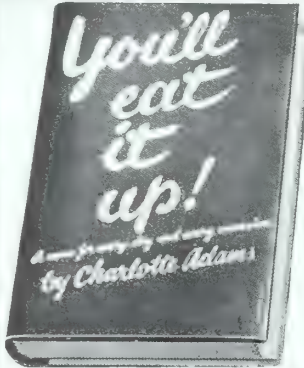 You'll
eat
it
up!
A menu for every day and every occasion
by Charlotte Adams